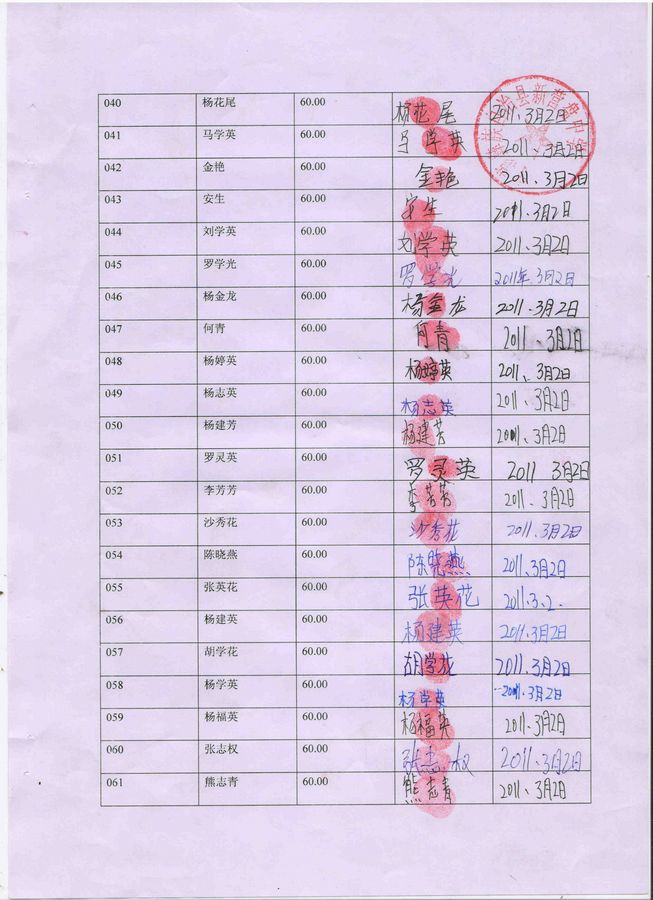 040 杨花尾 60.00 杨花尾 2011.3月2日
041 马学英 60.00 马学英 2011.3月2日
042 金艳 60.00 金艳 2011.3月2日
043 安生 60.00 安生 2011.3月2日
044 刘学英 60.00 刘学英 2011.3月2日
045 罗学光 60.00 罗学光 2011年3月2日
046 杨金龙 60.00 杨金龙 2011.3月2日
047 何青 60.00 何青 2011.3月2日
048 杨婷英 60.00 杨婷英 2011.3月2日
049 杨志英 60.00 杨志英 2011.3月2日
050 杨建芳 60.00 杨建芳 2011.3月2日
051 罗灵英 60.00 罗灵英 2011 3月2日
052 李芳芳 60.00 李芳芳 2011.3月2日
053 沙秀花 60.00 沙秀花 2011.3月2日
054 陈晓燕 60.00 陈晓燕 2011.3月2日
055 张英花 60.00 张英花 2011.3.2.
056 杨建英 60.00 杨建英 2011.3月2日
057 胡学花 60.00 胡学花 2011.3月2日
058 杨学英 60.00 杨学英 2011.3月2日
059 杨福英 60.00 杨福英 2011.3月2日
060 张志权 60.00 张志权 2011.3月2日
061 熊志青 60.00 熊志青 2011.3月2日